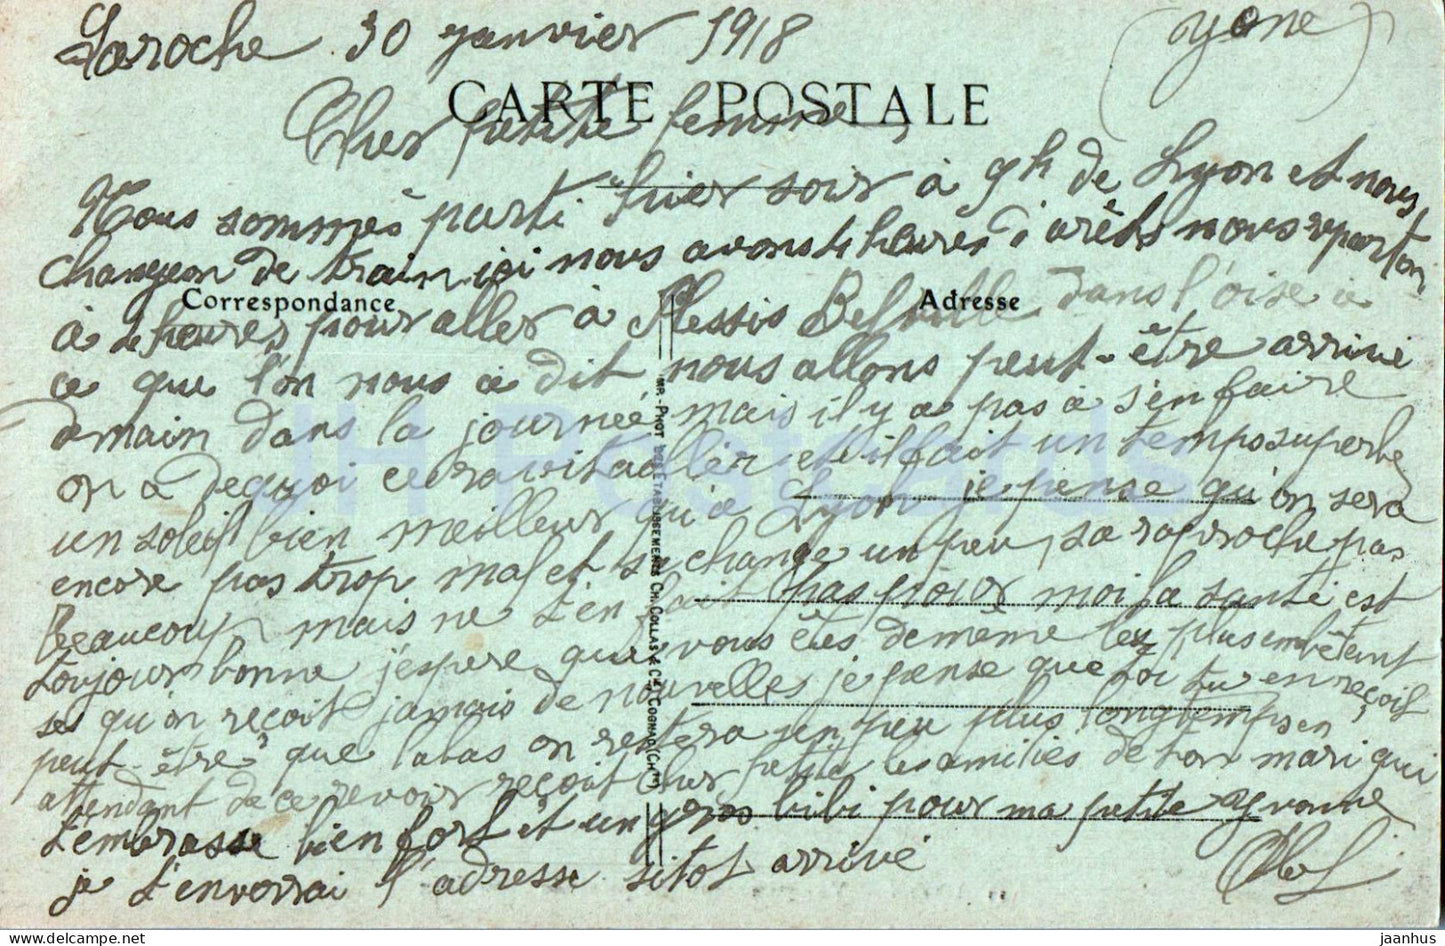 Laroche 30 janvier 1918 (yone)
CARTE POSTALE
Cher petite femme,
Nous sommes parti hier soir à 9h de Lyon et nous
changeon de train ici nous avons 4 heures d'arêts nous reparton
Correspondance
Adresse
à 2 heures pour aller à Plessis Belville dans l'oise à
ce que l'on nous à dit nous allons peut-être arrivé
demain dans la journée mais il y a pas à s'en faire
on a dequoi ce ravitailler et il fait un temp superbe
un soleil bien meilleur qu'à Lyon je pense qu'on sera
encore pas trop mal et sa change un peu, sa raproche pas
Beaucoup mais ne t'en fait pas pour moi la santé est
toujour bonne j'espere que vous êtes de même le plus embêtant
ses qu'on reçoit jamais de nouvelles je pense que toi tu en reçois
peut-être que labas on restera un peu plus longtemps en
attendant de ce revoir reçoit cher petite les amitiés de ton mari qui
t'embrasse bien fort et un gros bibi pour ma petite Yvonne
je t'enverrai l'adresse sitot arrivé
MR - PHOT DES ETABLISSEMENTS CH. COLLAS & Cie COGNAC (Chte)
JH Postcards
www.delcampe.net
jaanhus